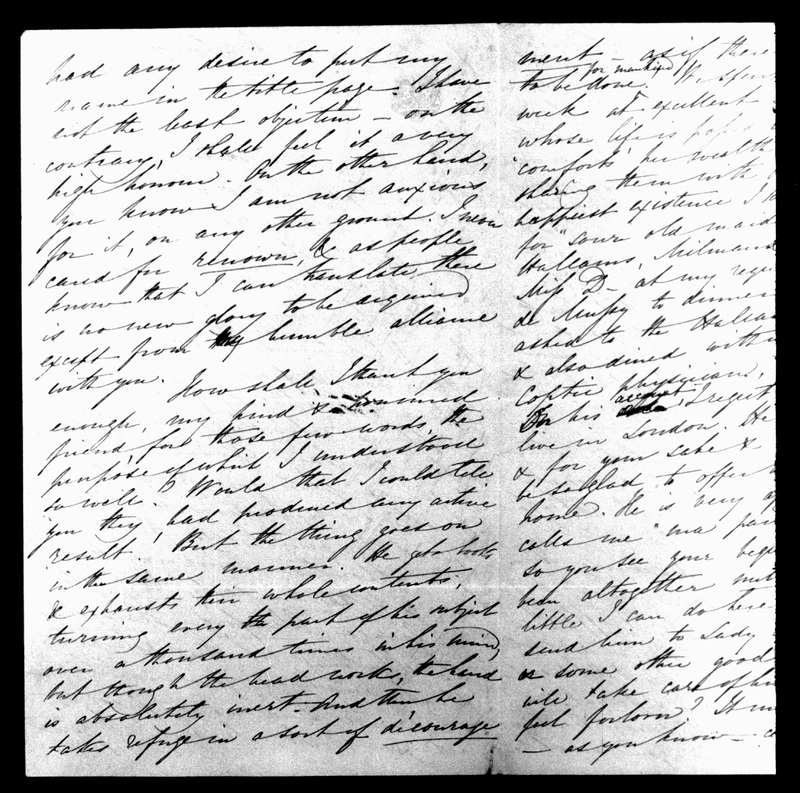 had any desire to put my
name in the title page. I have
not the least objection — on the
contrary, I shall feel it a very
high honour. On the other hand,
you know I am not anxious
for it, on any other ground. I never
cared for renown, & as people
know that I can translate there
is no new glory to be acquired
except from my humble alliance
with you. How shall I thank you
enough, my kind &
friend, for those few words, the
purpose of which I understood
so well. Would that I could tell
you they had produced any active
result. But the thing goes on
in the same manner. He gets books
& exhausts their whole contents,
turning every part of his subject
over a thousand times in his mind,
but though the head work, the hand
is absolutely inert. And then he
takes refuge in a sort of décourage
ment — as if there
to be done for mankind. We spent
week at excellent
whose life is
"comforts" her wealth
sharing them with
happiest existence I
for "sour old maid
Hallams, Milmans
Miss D— at my requ
de Mussy to dinner
asked to the Hallam
& also dined with
Coptic physician,
On his account, I regret
live in London. He
& for your sake &
be so glad to offer
home. He is very
calls me "ma
so you see your
been altogether
little I can do here
send him to Lady
or some other good
will take care of him
feel forlorn? It
— as you know —